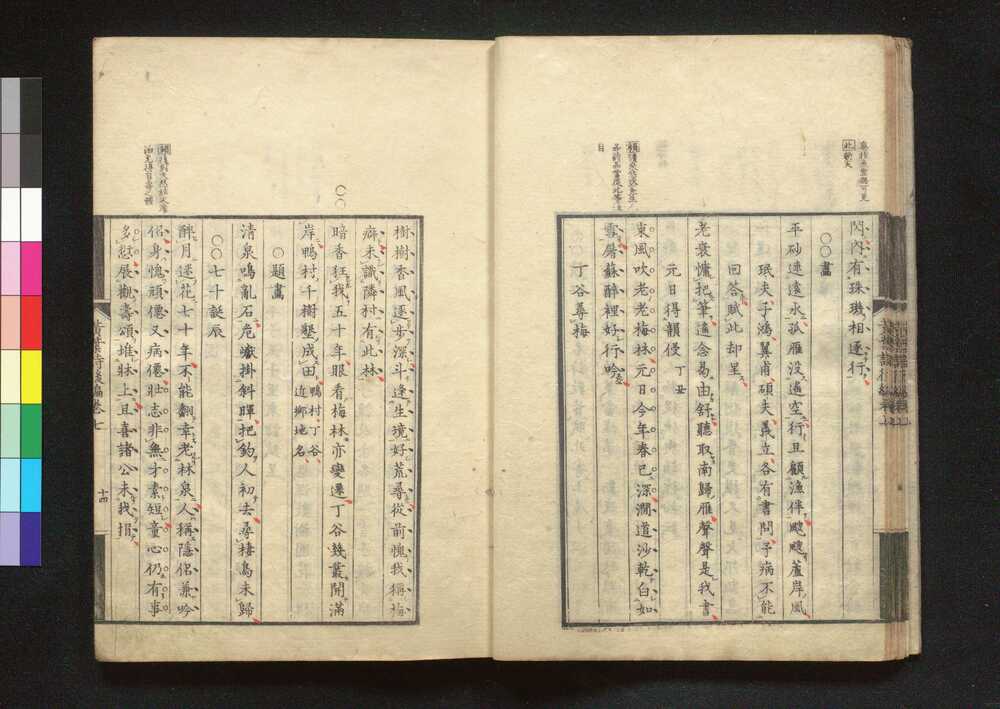 閃閃有珠璣相逐行
〇〇畫
平砂連遠水孤雁没遙空行且顧漁伴颼颼蘆岸風
珉夫子鴻翼甫碩夫義立各有書問予病不能
回答賦此却呈
老衰慵把筆遙念易由舒聽取南歸雁聲聲是我書
元日得韻侵 丁丑
東風吹老老梅林元日今年春已深澗道沙乾白如
雪屠蘇醉裡好行吟
丁谷尋梅
樹樹香風逐步深斗逢生境好荒尋從前愧我稱梅
癖未識隣村有此林
〇〇
暗香狂我五十年眼看梅林亦變遷丁谷幾叢開滿
岸鴨村千樹墾成田 鴨村丁谷
近鄉地名
〇題畫
清泉鳴亂石危巘掛斜暉把釣人初去尋棲鳥未歸
〇〇七十誕辰
醉月迷花七十年不能翻幸老林泉人稱隱侶兼吟
侶身愧頑僊又病僊壯志非無才素短童心仍有事
多愆展觀壽頌堆牀上且喜諸公未我捐
黃葉詩後編卷七
十四